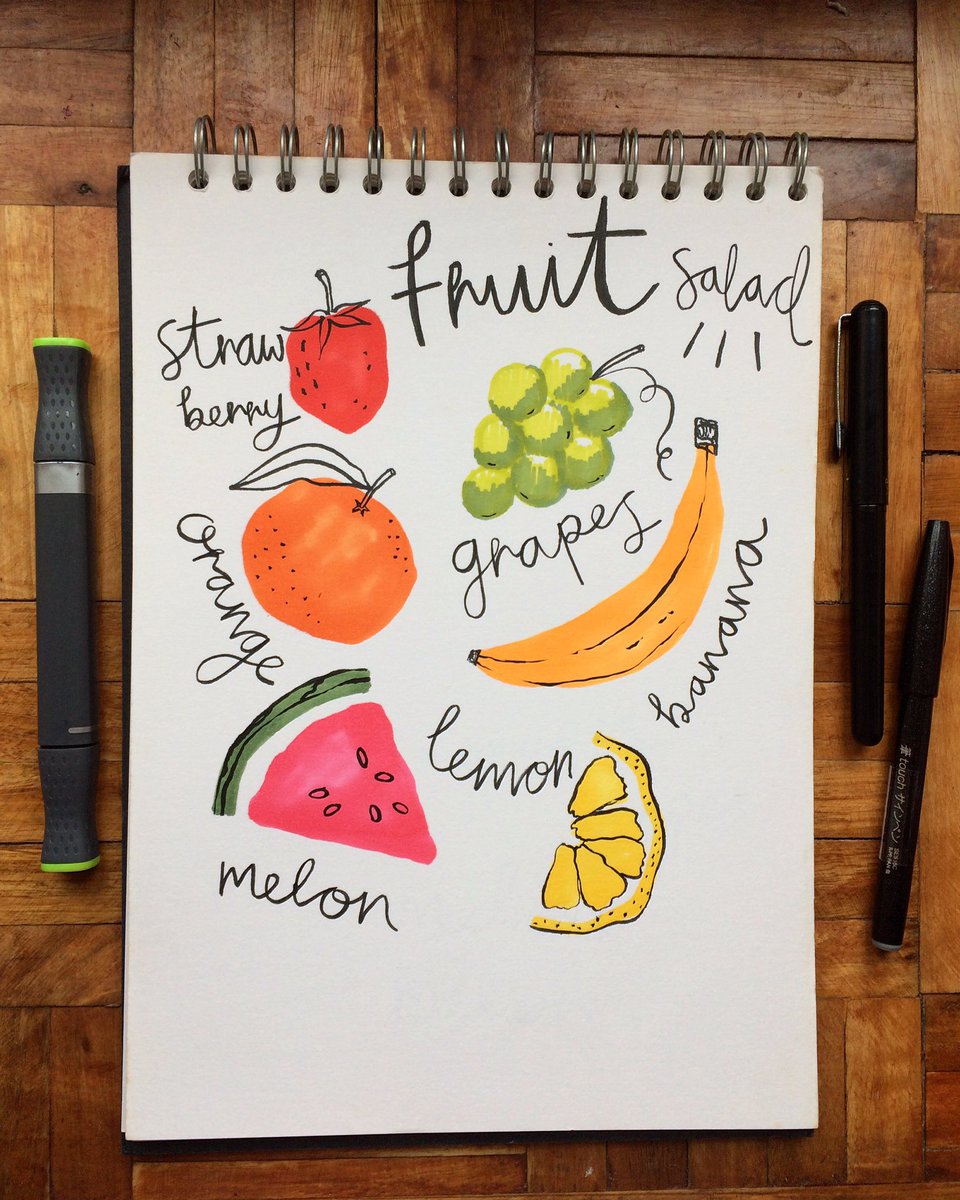 fruit salad
straw
berry
grapes
orange
banana
lemon
melon
touch サインペン